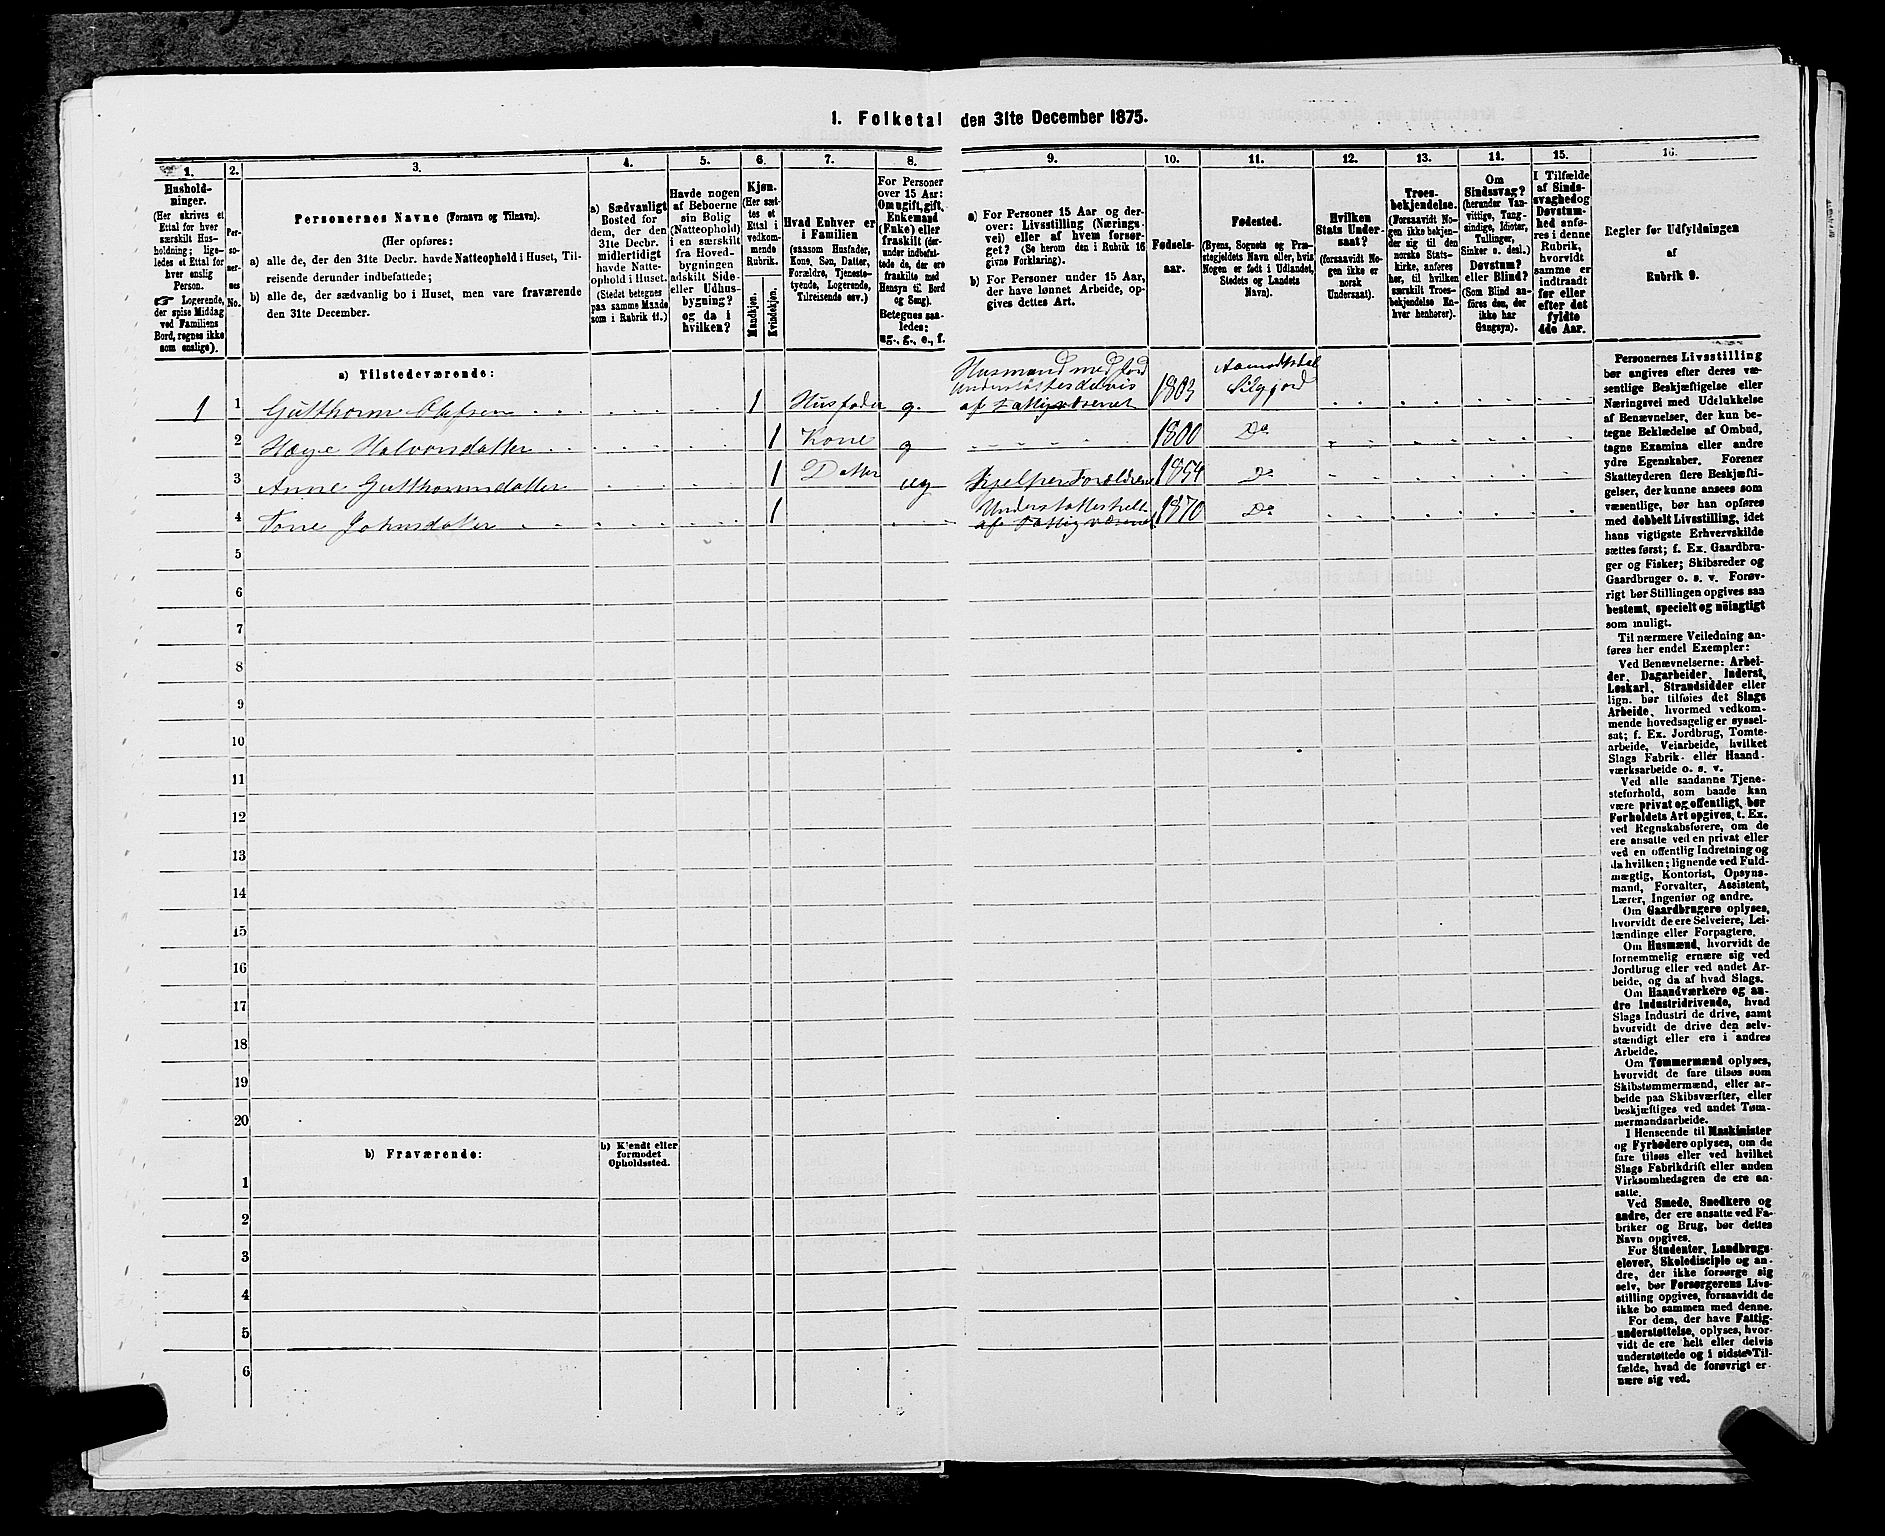 1. Folketal den 31te December 1875.
1.
Hushold-
ninger.
(Her skrives et
Ettal for hver
særskilt Hus-
holdning; lige-
ledes et Ettal for
hver enslig
Person.
☞ Logerende,
der spise Middag
ved Familiens
Bord, regnes ikke
som enslige).
2.
Per-
so-
ner-
nes
No.
3.
Personernes Navne (Fornavn og Tilnavn).
(Her opføres:
a) alle de, der den 31te Decbr. havde Natteophold i Huset, Til-
reisende derunder indbefattede;
b) alle de, der sædvanlig bo i Huset, men vare fraværende
den 31te December.
4.
a) Sædvanligt
Bosted for
dem, der den
31te Decbr.
midlertidigt
havde Natte-
ophold i Huset.
(Stedet betegnes
paa samme Maade
som i Rubrik 11.)
5.
Havde nogen
af Beboerne
sin Bolig
(Natteophold)
i en særskilt
fra Hoved-
bygningen
adskilt Side-
eller Udhus-
bygning?
og da i
hvilken?
6.
Kjøn.
(Her sæt-
tes et
Ettal i
vedkom-
mende
Rubrik.
Mandkjøn.
Kvindekjøn.
7.
Hvad Enhver er
i Familien
(saasom Husfader,
Kone, Søn, Datter,
Forældre, Tjeneste-
tyende, Logerende,
Tilreisende osv.)
8.
For Personer
over 15 Aar:
Om ugift, gift,
Enkemand
(Enke) eller
fraskilt (der-
under indbefat-
tede de, der ere
fraskilte med
Hensyn til Bord
og Seng).
Betegnes saa-
ledes:
ug., g., e., f.
9.
a) For Personer 15 Aar og der-
over: Livsstilling (Nærings-
vei) eller af hvem forsør-
get? (Se herom den i Rubrik 16
givne Forklaring).
b) For Personer under 15 Aar,
der have lønnet Arbeide, op-
gives dettes Art.
10.
Fødsels-
aar.
11.
Fødested.
(Byens, Sognets og Præ-
stegjeldets Navn eller, hvis
Nogen er født i Udlandet,
Stedets og Landets
Navn).
12.
Hvilken
Stats Under-
saat?
(forsaavidt No-
gen ikke er
norsk
Undersaat).
13.
Troes-
bekjendelse.
(Forsaavidt No-
gen ikke bekjen-
der sig til den
norske Stats-
kirke, anføres
her, til hvilken
særskilt Troes-
bekjendelse En-
hver henhører).
14.
Om
Sindssvag?
(herunder Van-
vittige, Tung-
sindige, Idioter,
Tullinger,
Sinker o. desl.)
Døvstum?
eller Blind?
(Som Blind an-
føres den, der
ikke har
Gangsyn).
15.
I Tilfælde
af Sinds-
svaghed og
Døvstum-
hed anfø-
res i denne
Rubrik,
hvorvidt
samme er
indtraadt
før eller
efter det
fyldte
4de Aar.
16.
Regler for Udfyldningen
af
Rubrik 9.
a) Tilstedeværende:
1 1 Gutthorm Olefsen 1 Husfader g. Husmand med Jord Understøttes delvis af Fattigvæsenet 1803 Aamodtsdal Siljord
2 Hæge Halvorsdatter 1 Kone g 1800 Do
3 Anne Gutthormsdatter 1 Datter ug Hjelper Forældrene 1854 Do
4 Tone Johnsdatter 1 Understøttes helt af Fattigvæsenet 1870 Do
5
6
7
8
9
10
11
12
13
14
15
16
17
18
19
20
b) Fraværende:
b) Kjendt eller
formodet
Opholdssted.
1
2
3
4
5
6
Personernes Livsstilling
bør angives efter deres væ-
sentlige Beskjæftigelse eller
Næringsvei med Udelukkelse
af Benævnelser, der kun be-
tegne Beklædelse af Ombud,
tagne Examina eller andre
ydre Egenskaber. Forener
Skatteyderen flere Beskjæfti-
gelser, der kunne ansees som
væsentlige, bør han opføres
med dobbelt Livsstilling, idet
hans vigtigste Erhvervskilde
sættes først; f. Ex. Gaardbru-
ger og Fisker; Skibsreder og
Gaardbruger o. s. v. Forøv-
rigt bør Stillingen opgives saa
bestemt, specielt og nöiagtigt
som muligt.
Til nærmere Veiledning an-
føres her endel Exempler:
Ved Benævnelserne: Arbei-
der, Dagarbeider, Inderst,
Løskarl, Strandsidder eller
lign. bør tilføies det Slags
Arbeide, hvormed vedkom-
mende hovedsagelig er syssel-
sat; f. Ex. Jordbrug, Tomte-
arbeide, Veiarbeide, hvilket
Slags Fabrik- eller Haand-
værksarbeide o. s. v.
Ved alle saadanne Tjene-
steforhold, som baade kan
være privat og offentligt, bør
Forholdets Art opgives, t. Ex.
ved Regnskabsførere, om de
ere ansatte ved en privat eller
ved en offentlig Indretning og
da hvilken; lignende ved Fuld-
mægtig, Kontorist, Opsyns-
mand, Forvalter, Assistent,
Lærer, Ingeniør og andre.
Om Gaardbrugere oplyses,
hvorvidt de ere Selveiere, Lei-
lændinge eller Forpagtere.
Om Husmænd, hvorvidt de
fornemmelig ernære sig ved
Jordbrug eller ved andet Ar-
beide, og da af hvad Slags.
Om Haandværkere og an-
dre Industridrivende, hvad
Slags Industri de drive, samt
hvorvidt de drive den selv-
stændigt eller ere i andres
Arbeide.
Om Tømmermænd oplyses,
hvorvidt de fare tilsøs som
Skibstømmermænd, eller ar-
beide paa Skibsværfter, eller
beskjæftiges ved andet Tøm-
mermandsarbeide.
I Henseende til Maskinister
og Fyrbødere oplyses, om de
fare tilsøs eller ved hvilket
Slags Fabrikdrift eller anden
Virksomhedsgren de ere an-
satte.
Ved Smede, Snedkere og
andre, der ere ansatte ved Fa-
briker og Brug, bør dettes
Navn opgives.
For Studenter, Landbrugs-
elever, Skoledisciple og an-
dre, der ikke forsørge sig
selv, bør Forsørgerens Livs-
stilling opgives, forsaavidt de
ikke bo sammen med denne.
For dem, der have Fattig-
understøttelse, oplyses, hvor-
vidt de ere helt eller delvis
understøttede og i sidste Til-
fælde, hvad de forøvrigt er-
nære sig ved.